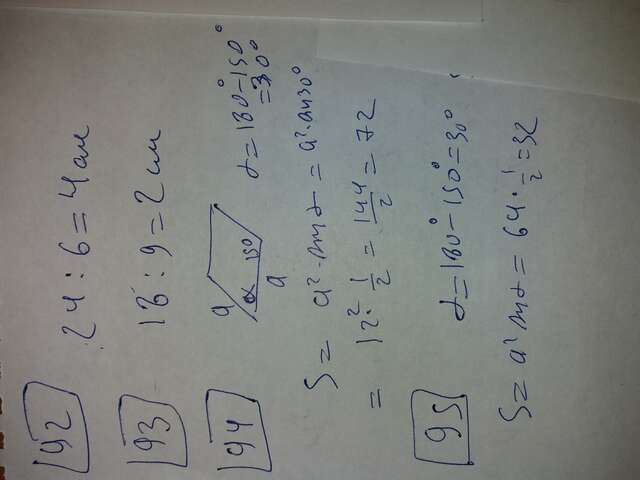 92 24 : 6 = 4 см
93 18 : 9 = 2 см
94 a α 150 a α = 180° - 150° = 30°
S = a² · sin α = a² · sin 30°
= 12² · 1/2 = 144/2 = 72
95 α = 180° - 150° = 30°
S = a² sin α = 64 · 1/2 = 32